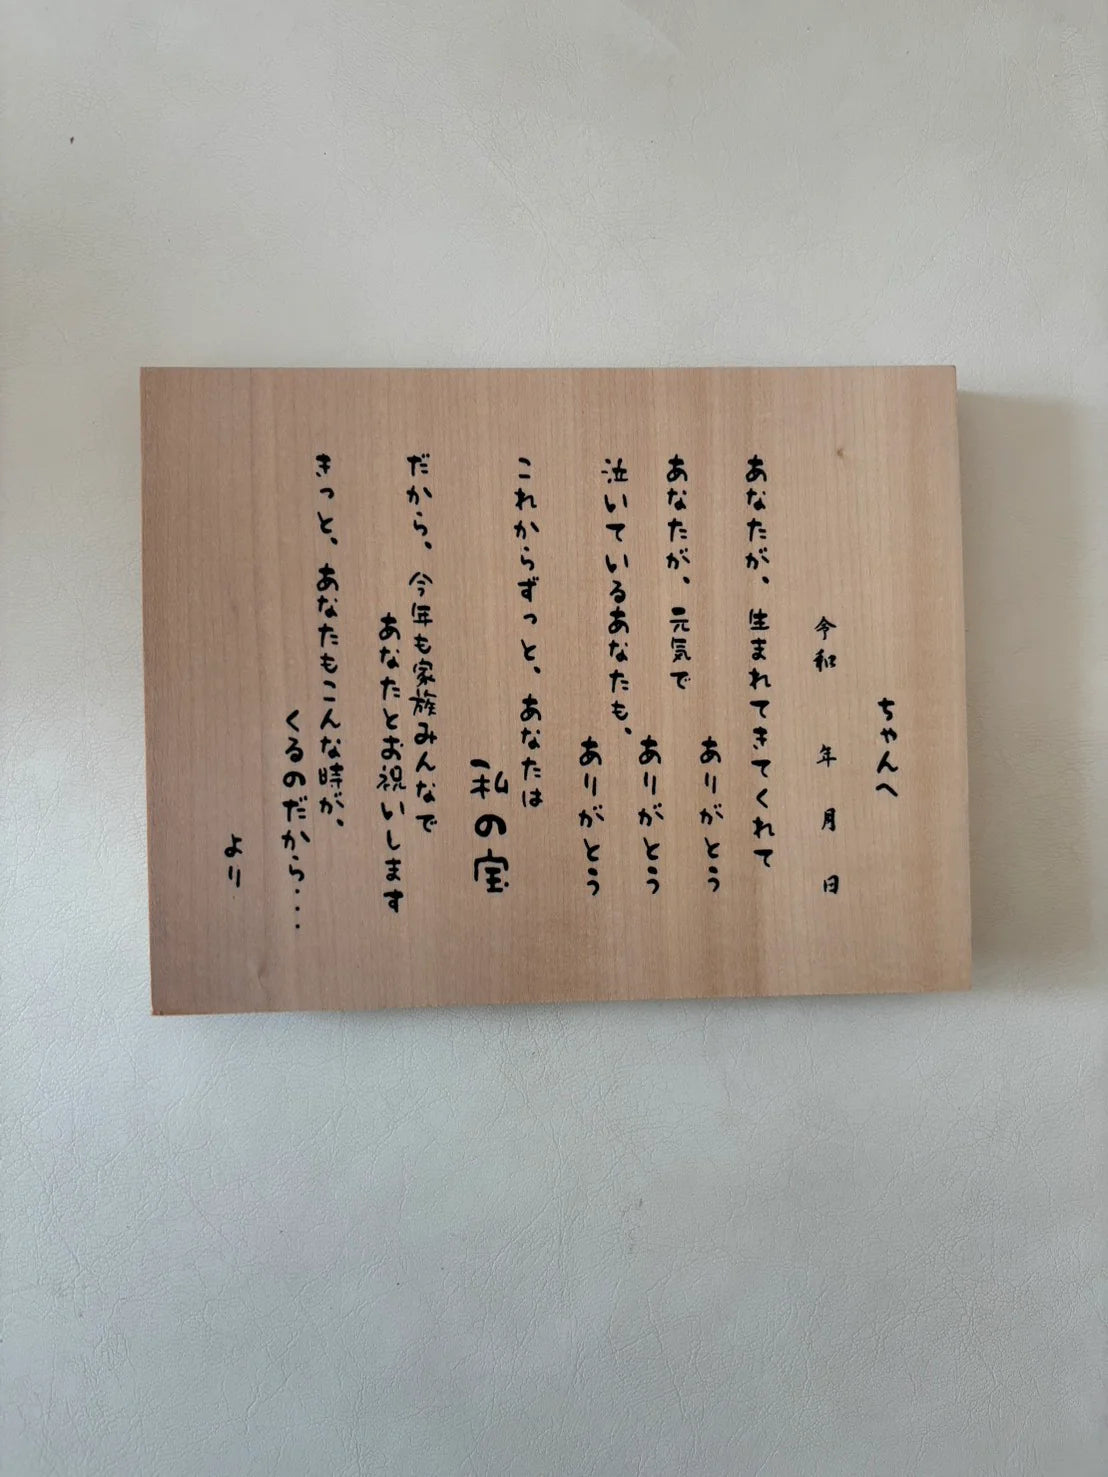 ちゃんへ
令和　年　月　日
あなたが、生まれてきてくれて
ありがとう
あなたが、元気で
ありがとう
泣いているあなたも、
ありがとう
これからずっと、あなたは
私の宝
だから、今年も家族みんなで
あなたとお祝いします
きっと、あなたもこんな時が、
くるのだから・・・
より